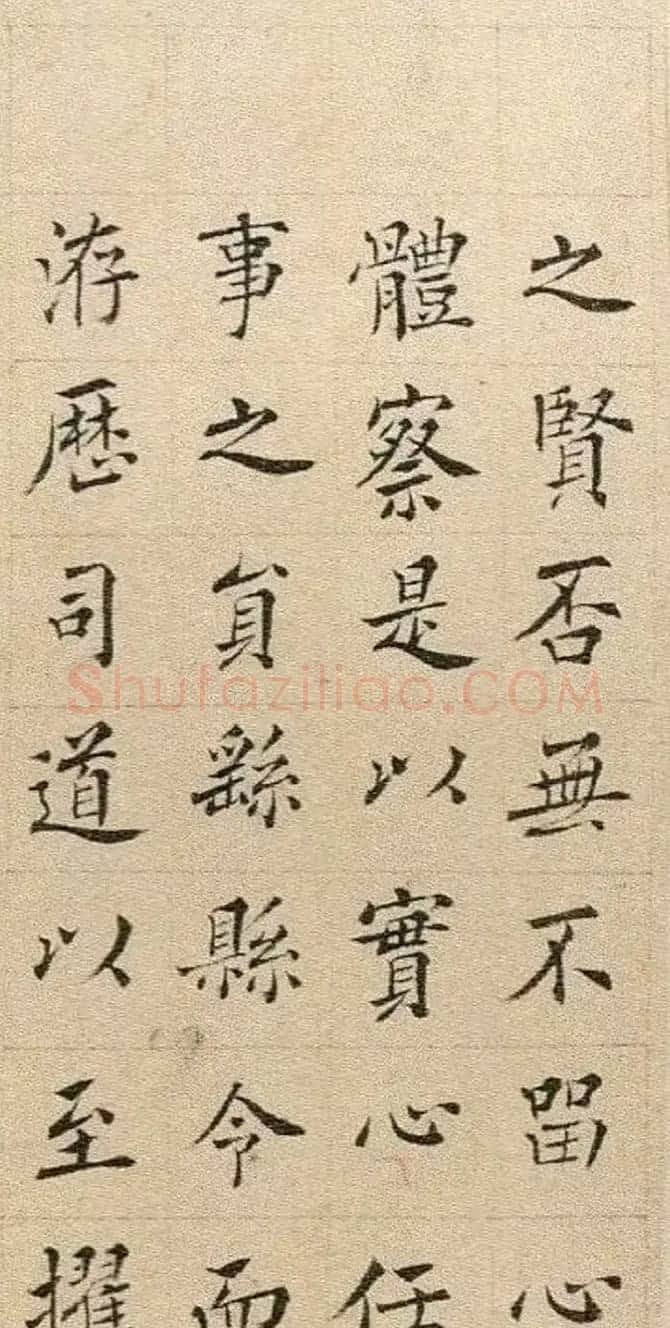 之賢否無不畱心
體察是以實心任
事之貟繇縣令而
洊歷司道以至擢
Shufaziliao.COM